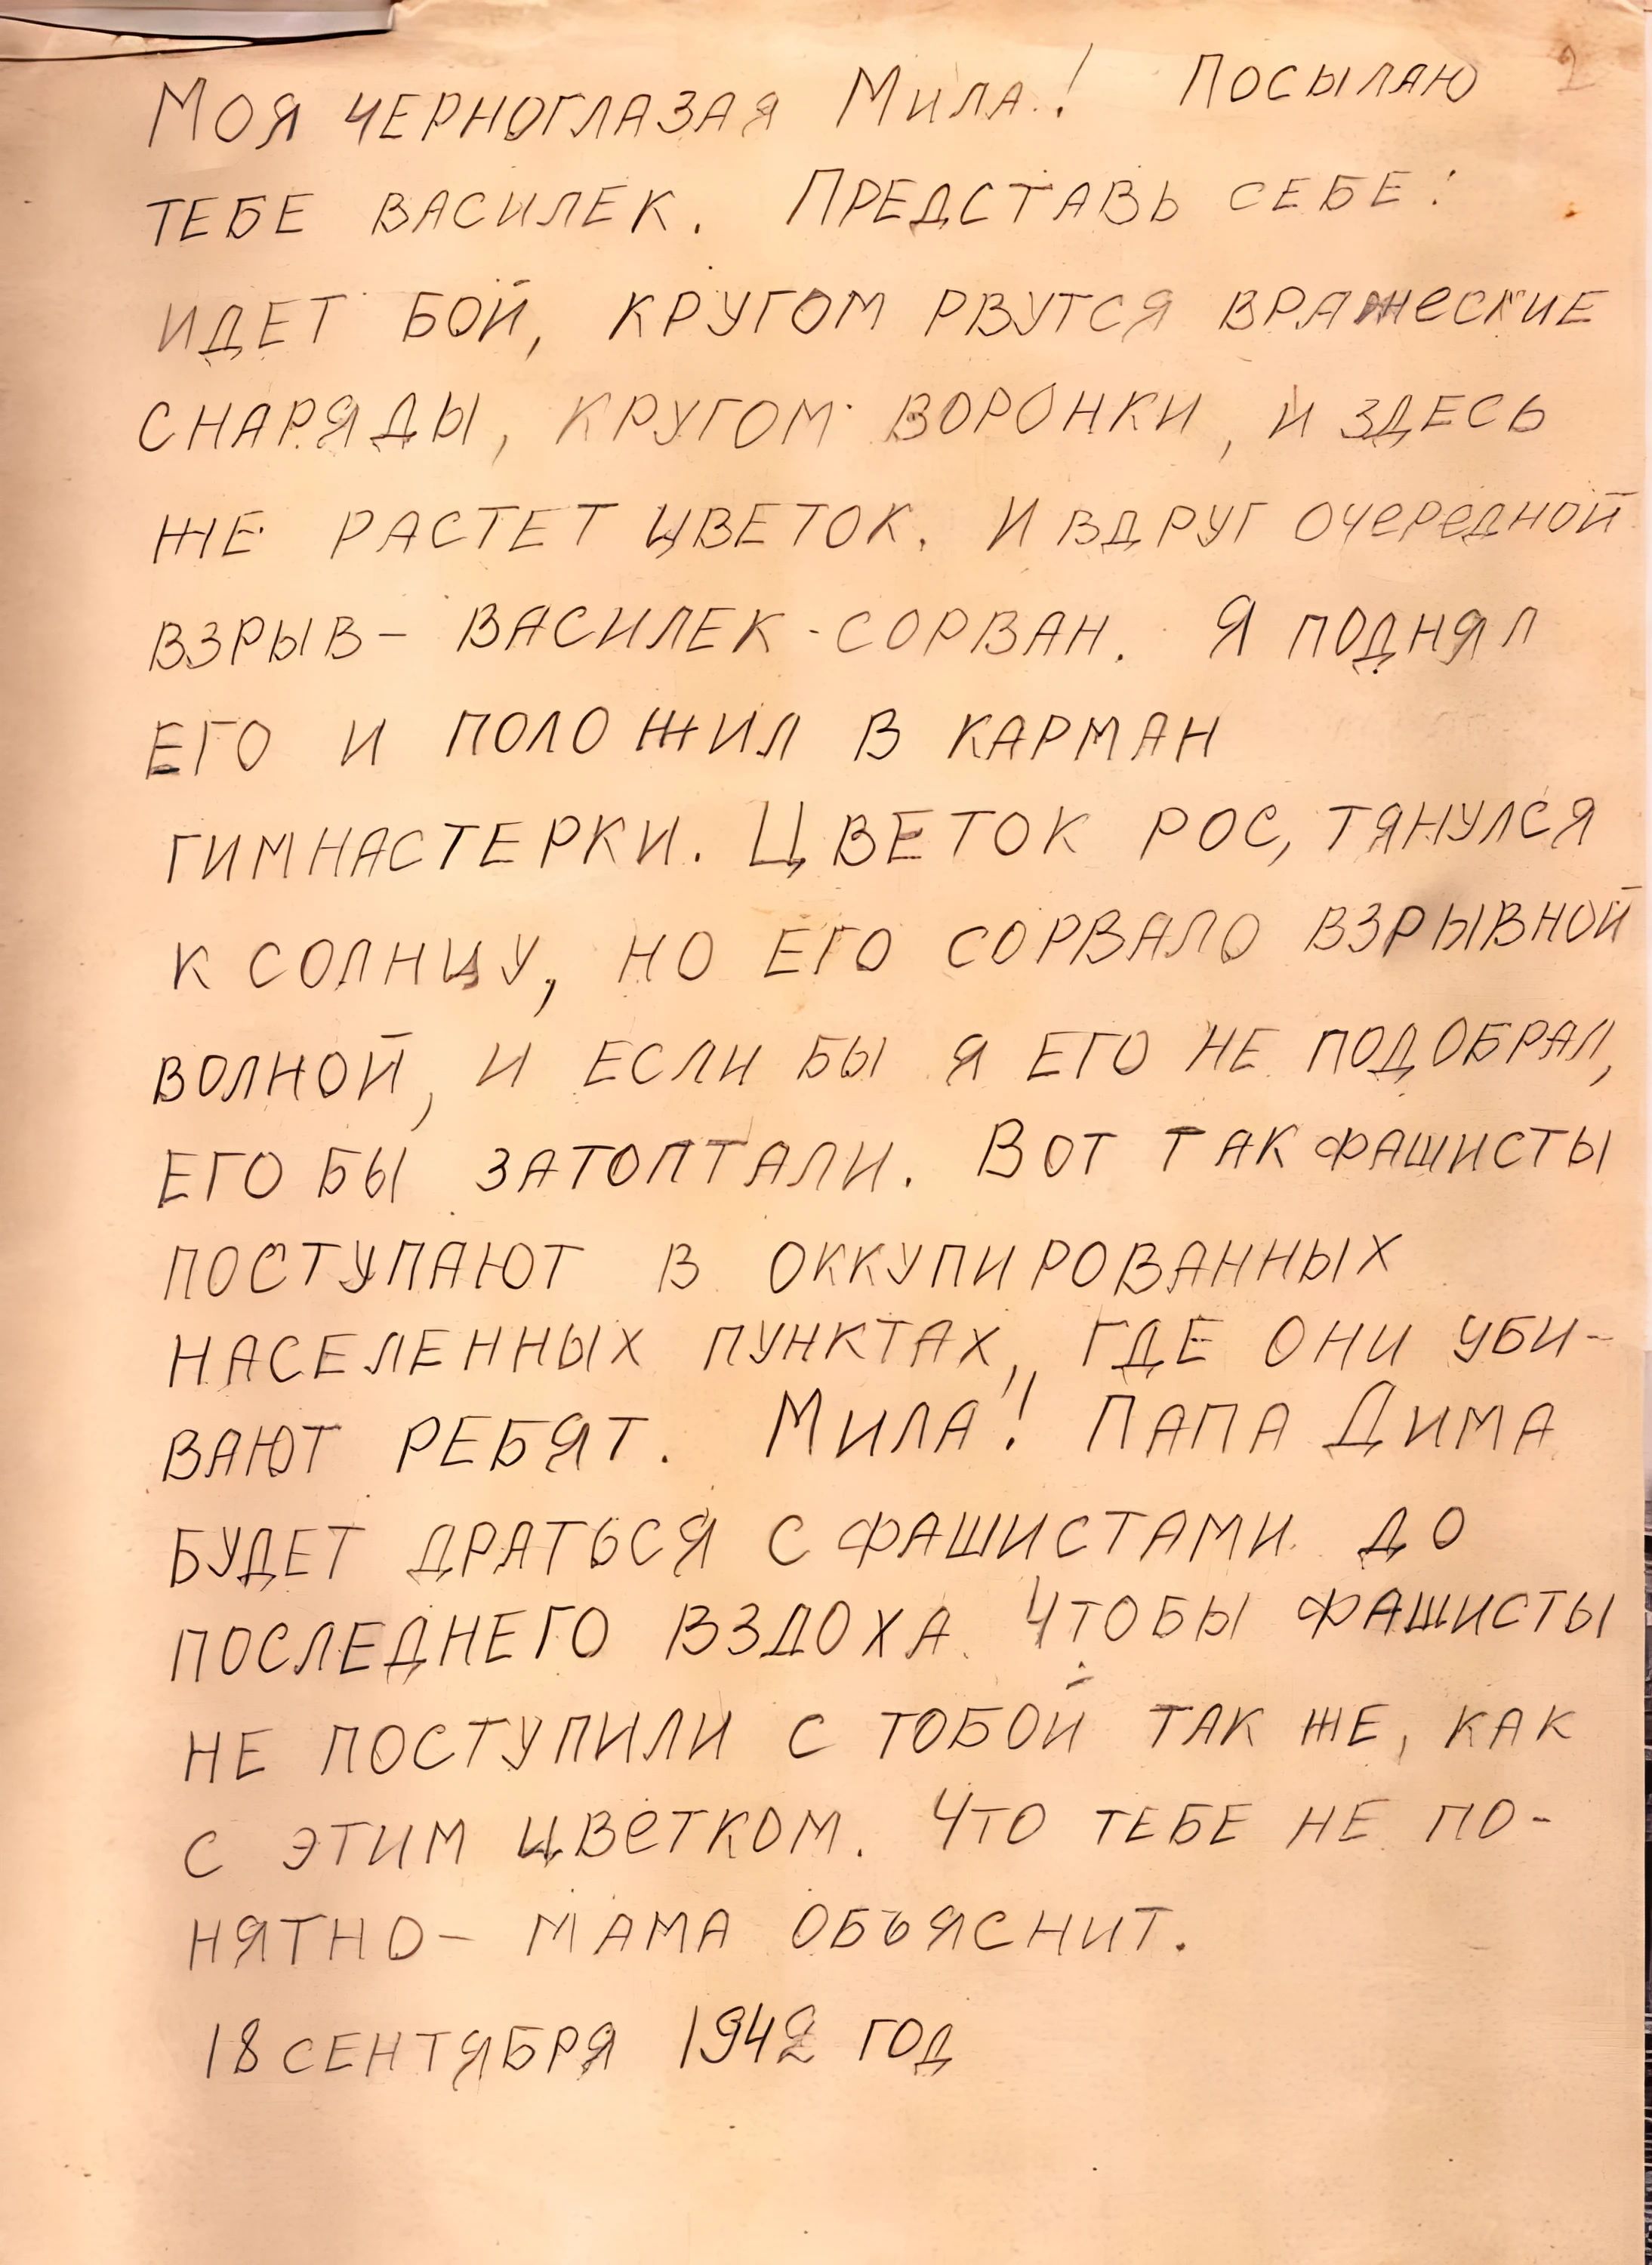 Моя черноглазая Мила! Посылаю 2
тебе василек. Представь себе:
идет бой, кругом рвутся вражеские
снаряды, кругом воронки, и здесь
же растет цветок. И вдруг очередной
взрыв - василек - сорван. Я поднял
его и положил в карман
гимнастерки. Цветок рос, тянулся
к солнцу, но его сорвало взрывной
волной, и если бы я его не подобрал,
его бы затоптали. Вот так фашисты
поступают в оккупированных
населенных пунктах, где они уби-
вают ребят. Мила! Папа Дима
будет драться с фашистами до
последнего вздоха. Чтобы фашисты
не поступили с тобой так же, как
с этим цветком. Что тебе не по-
нятно - мама объяснит.
18 сентября 1942 год